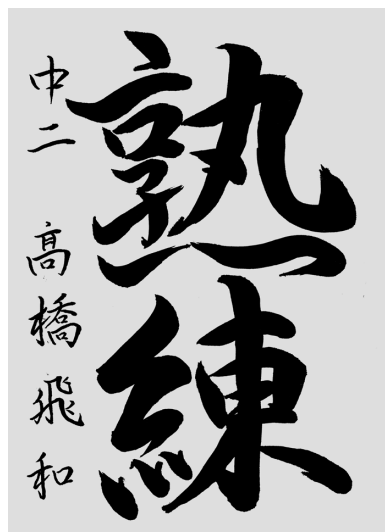 熟練
中二 高橋飛和